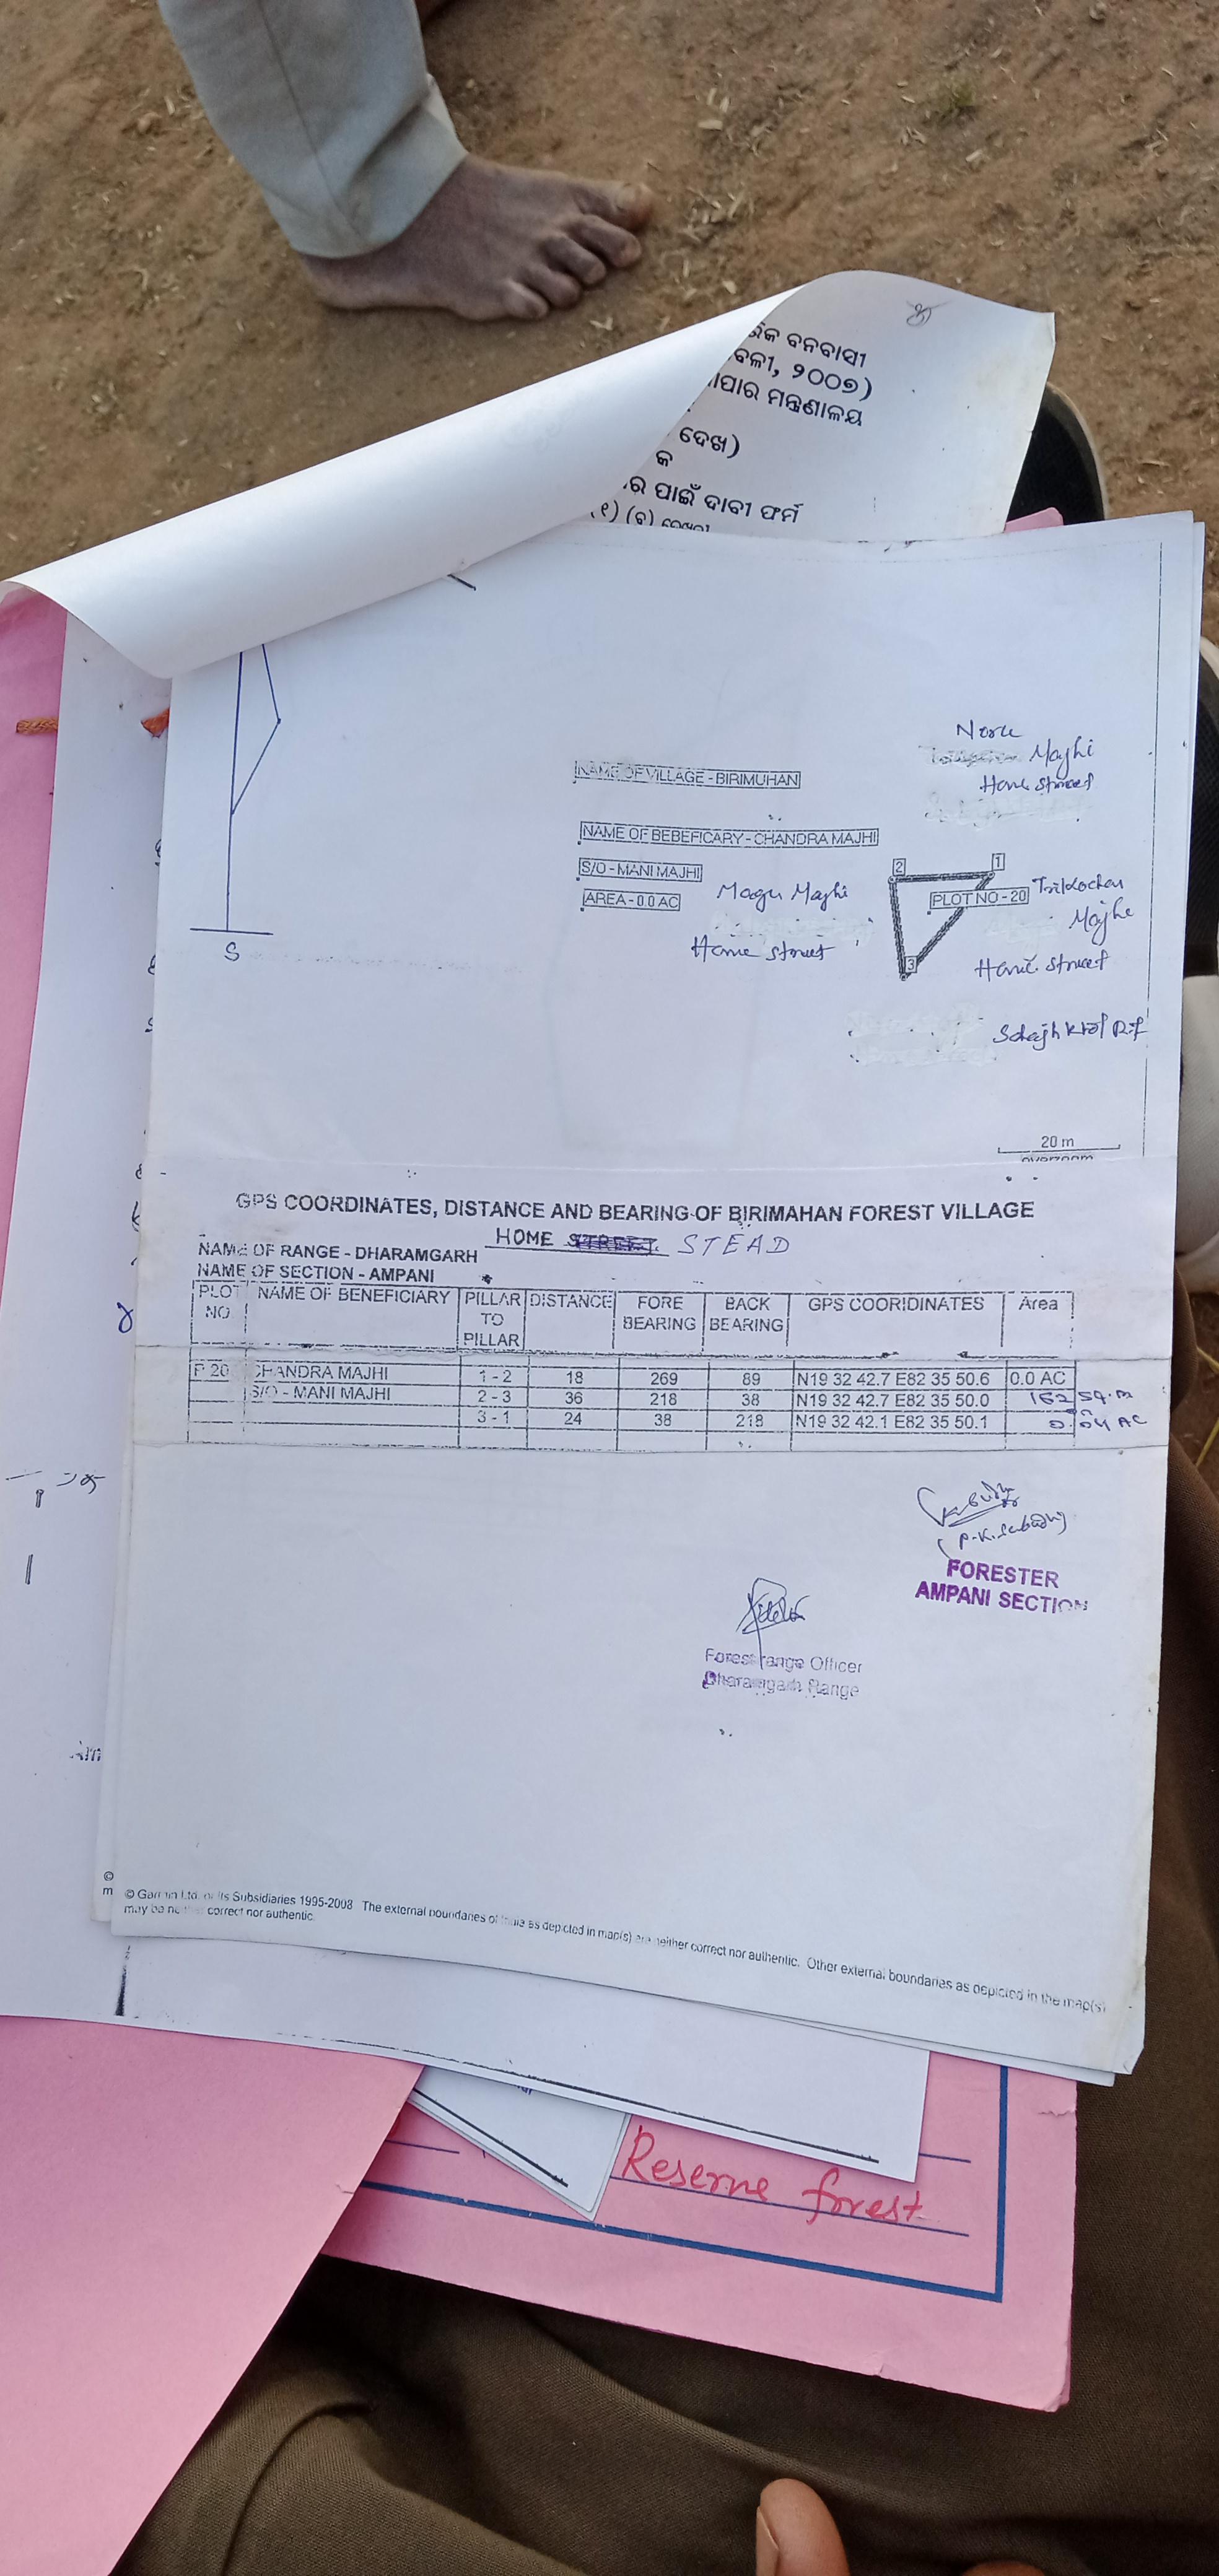 ବନବାସୀ
୨୦୦୭)
ମନ୍ତ୍ରଣାଳୟ
ଦେଖ)
କ
ପାଇଁ ଦାବୀ ଫର୍ମ
(୧) (ବ)
Majhi
Home street
NAME OF VILLAGE - BIRIMUHAN
NAME OF BEBEFICARY - CHANDRA MAJHI
S/O - MANI MAJHI
AREA - 0.0 AC
Magu Majhi
Home street
2
1
PLOT NO - 20
3
Trilochan
Majhi
Home street
S
20 m
overzoom
GPS COORDINATES, DISTANCE AND BEARING OF BIRIMAHAN FOREST VILLAGE
HOME STREET STEAD
NAME OF RANGE - DHARAMGARH
NAME OF SECTION - AMPANI
PLOT NO NAME OF BENEFICIARY PILLAR TO PILLAR DISTANCE FORE BEARING BACK BEARING GPS COORIDINATES Area
P 20 CHANDRA MAJHI 1 - 2 18 269 89 N19 32 42.7 E82 35 50.6 0.0 AC
S/O - MANI MAJHI 2 - 3 36 218 38 N19 32 42.7 E82 35 50.0 162 sq.m
3 - 1 24 38 218 N19 32 42.1 E82 35 50.1 0.04 AC
FORESTER
AMPANI SECTION
Forest range Officer
Dharamgarh Range
© Garmin Ltd. or its Subsidiaries 1995-2008 The external boundaries of India as depicted in map(s) are neither correct nor authentic. Other external boundaries as depicted in the map(s)
may be neither correct nor authentic.
Reserve forest